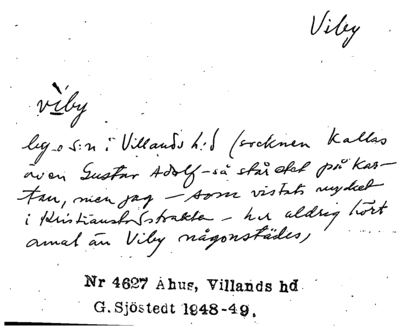 Viby
viby
by o s:n i Villands h:d (socknen kallas
även Gustav Adolf - så står det på kar-
tan, men jag - som vistats mycket
i Kristianstadstrakten - har aldrig hört
annat än Viby någonstädes,
Nr 4627 Åhus, Villands hd
G. Sjöstedt 1948-49.